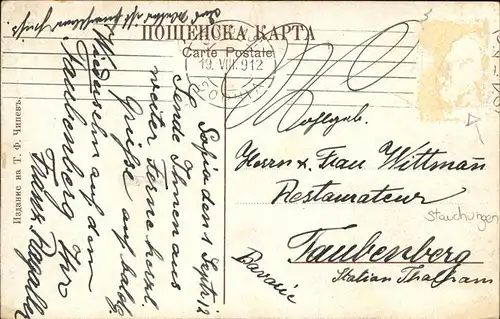 ПОЩЕНСКА КАРТА
Carte Postale
19. VIII. 912
Sofia den 1 Sept. 12
Sende Ihnen aus
weiter Ferne herzl.
Grüße auf baldg.
Wiedersehn auf dem
Taubenberg Ihr
Franz
Издание на Т. Ф. Чипевъ.
Wohlgeb.
Herrn u. Frau Wittmann
Restaurateur
Stauchungen
Taubenberg
Station Thalham
Bavarie